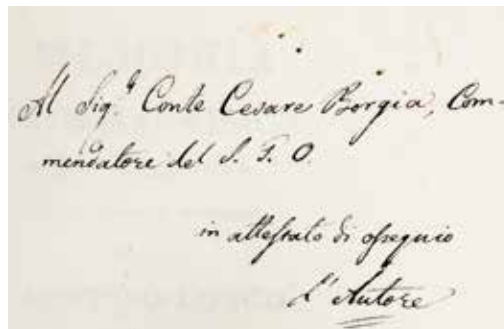 Al Sig.r Conte Cesare Borgia, Com-
mendatore del S. G. O.
in attestato di ossequio
L'Autore